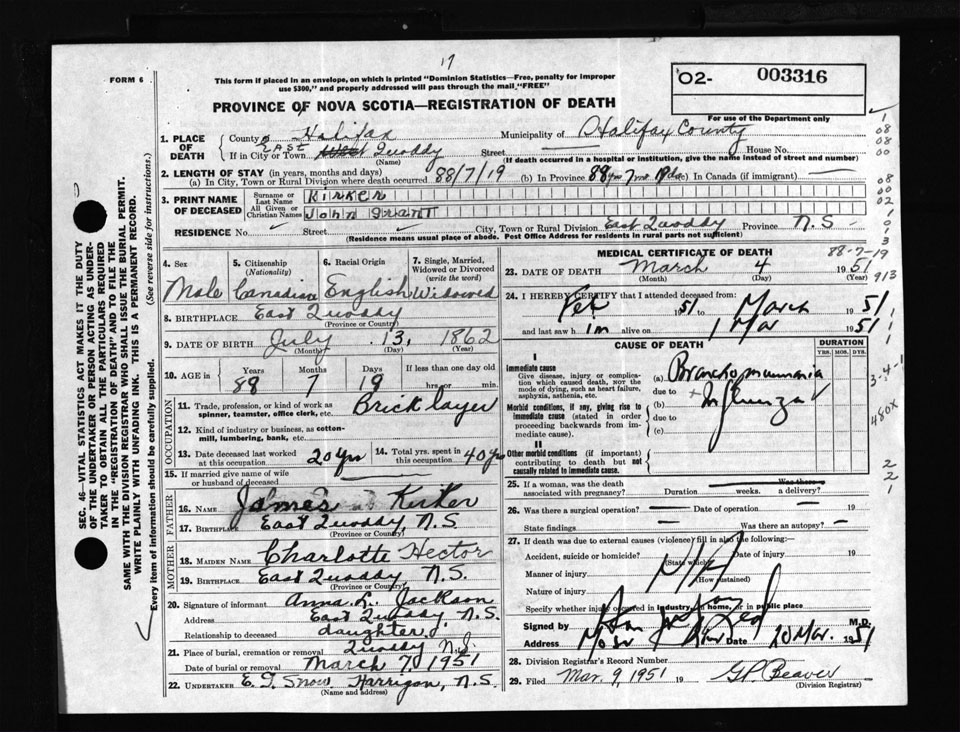 17
FORM 6
This form if placed in an envelope, on which is printed "Dominion Statistics—Free, penalty for improper
use $300," and properly addressed will pass through the mail "FREE"
O2- 003316
PROVINCE OF NOVA SCOTIA—REGISTRATION OF DEATH
For use of the Department only
1. PLACE OF DEATH
County of Halifax Municipality of Halifax County
EAST
If in City or Town Quoddy Street House No.
(Name) (If death occurred in a hospital or institution, give the name instead of street and number)
2. LENGTH OF STAY (in years, months and days)
(a) In City, Town or Rural Division where death occurred 88/7/19 (b) In Province 88 yrs 7 mo 19 ds (c) In Canada (if immigrant)
3. PRINT NAME OF DECEASED
Surname or Last Name Kirker
All Given or Christian Names John Grant
RESIDENCE No. Street City, Town or Rural Division East Quoddy Province N.S
(Residence means usual place of abode. Post Office Address for residents in rural parts not sufficient)
4. Sex
Male
5. Citizenship (Nationality)
Canadian
6. Racial Origin
English
7. Single, Married, Widowed or Divorced (write the word)
Widowed
8. BIRTHPLACE East Quoddy
(Province or Country)
9. DATE OF BIRTH July 13, 1862
(Month) (Day) (Year)
10. AGE in Years Months Days If less than one day old
88 7 19 hrs. or min.
OCCUPATION
11. Trade, profession, or kind of work as
spinner, teamster, office clerk, etc. Bricklayer
12. Kind of industry or business, as cotton-
mill, lumbering, bank, etc.
13. Date deceased last worked
at this occupation 20 yrs
14. Total yrs. spent in
this occupation 40 yrs
15. If married give name of wife
or husband of deceased
FATHER
16. NAME James Kirker
17. BIRTHPLACE East Quoddy, N.S
(Province or Country)
MOTHER
18. MAIDEN NAME Charlotte Hector
19. BIRTHPLACE East Quoddy N.S.
(Province or Country)
20. Signature of informant Anna L. Jackson
Address East Quoddy, N.S.
Relationship to deceased daughter
21. Place of burial, cremation or removal Quoddy N.S.
Date of burial or removal March 7, 1951
22. UNDERTAKER E. G. Snow Harrigan, N.S.
(Name and address)
MEDICAL CERTIFICATE OF DEATH
23. DATE OF DEATH March 4 1951
(Month) (Day)
24. I HEREBY CERTIFY that I attended deceased from:
Feb 51 to March 1951
and last saw him alive on 1 Mar 1951
CAUSE OF DEATH
DURATION
YRS. MOS. DYS.
I
Immediate cause
Give disease, injury or complica-
tion which caused death, NOT the
mode of dying, such as heart failure,
asphyxia, asthenia, etc.
(a) Bronchopneumonia
due to + Influenza
Morbid conditions, if any, giving rise to
immediate cause (stated in order
proceeding backwards from im-
mediate cause).
(b)
due to
(c)
II
Other morbid conditions (if important)
contributing to death but not
causally related to immediate cause.
25. If a woman, was the death
associated with pregnancy? Duration weeks. Was there a delivery?
26. Was there a surgical operation? Date of operation 19
State findings Was there an autopsy?
27. If death was due to external causes (violence) fill in also the following:
Accident, suicide or homicide? Date of injury 19
(State which)
Manner of injury
(How sustained)
Nature of injury
Specify whether injury occurred in industry, in home, or in public place
Signed by M.D.
Address Date 10 Mar. 1951
28. Division Registrar's Record Number
29. Filed Mar. 9, 1951 19 G.P. Beaver
(Division Registrar)
1
08
08
00
08
00
02
1
0
1
3
88-7-19
913
3-4-1
480X
2
2
1
SEC. 46—VITAL STATISTICS ACT MAKES IT THE DUTY
OF THE UNDERTAKER OR PERSON ACTING AS UNDER-
TAKER TO OBTAIN ALL THE PARTICULARS REQUIRED
IN THE "REGISTRATION OF DEATH" AND TO FILE THE
SAME WITH THE DIVISION REGISTRAR WHO SHALL ISSUE THE BURIAL PERMIT.
WRITE PLAINLY WITH UNFADING INK. THIS IS A PERMANENT RECORD.
Every item of information should be carefully supplied. (See reverse side for instructions.)